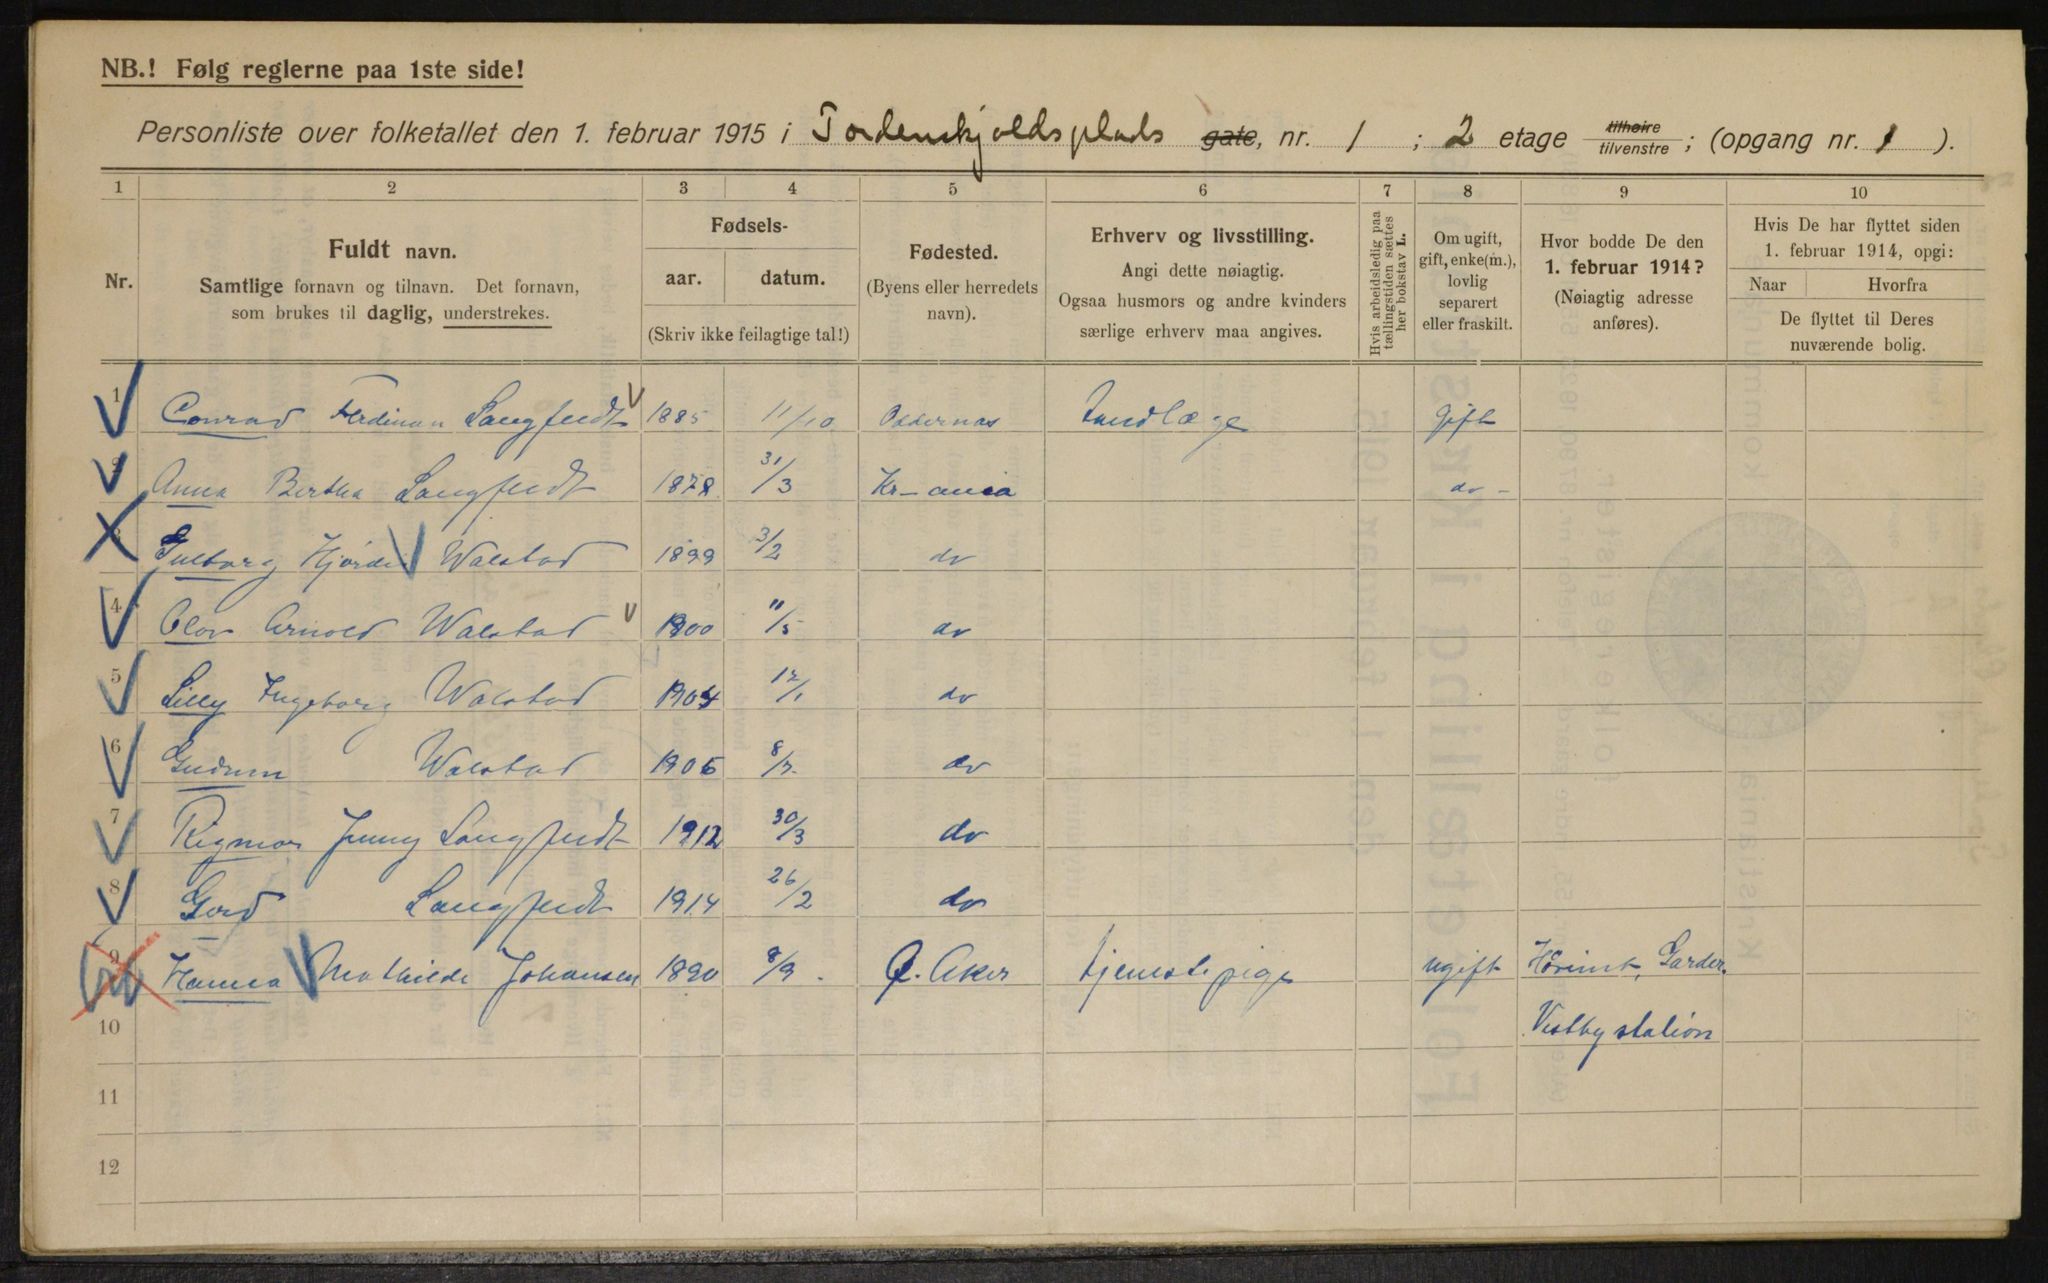 NB.! Følg reglerne paa 1ste side!
Personliste over folketallet den 1. februar 1915 i Tordenskjoldsplads gate, nr. 1 ; 2 etage tilhøire tilvenstre ; (opgang nr. 1 ).
1 2 3 4 5 6 7 8 9 10
Nr.
Fuldt navn.
Samtlige fornavn og tilnavn. Det fornavn,
som brukes til daglig, understrekes.
Fødsels-
aar. datum.
(Skriv ikke feilagtige tal!)
Fødested.
(Byens eller herredets
navn).
Erhverv og livsstilling.
Angi dette nøiagtig.
Ogsaa husmors og andre kvinders
særlige erhverv maa angives.
Hvis arbeidsledig paa
tællingstiden sættes
her bokstav L.
Om ugift,
gift, enke(m.),
lovlig
separert
eller fraskilt.
Hvor bodde De den
1. februar 1914?
(Nøiagtig adresse
anføres).
Hvis De har flyttet siden
1. februar 1914, opgi:
Naar Hvorfra
De flyttet til Deres
nuværende bolig.
1 Conrad Ferdinan Langfeldt 1885 11/10 Oddernas Tandlæge gift
2 Anna Bertha Langfeldt 1878 31/3 Kr-ania do -
3 Hjørdis Walstad 1899 3/2 do
4 Olav Arnold Walstad 1900 11/5 do
5 Lilly Ingeborg Walstad 1904 12/1 do
6 Gudrun Walstad 1906 8/7 do
7 Rigmor Jenny Langfeldt 1912 30/3 do
8 Gerd Langfeldt 1914 26/2 do
9 Hanna Mathilde Johansen 1890 8/9 Aker tjenestepige ugift Garder.
10 Vestby station
11
12